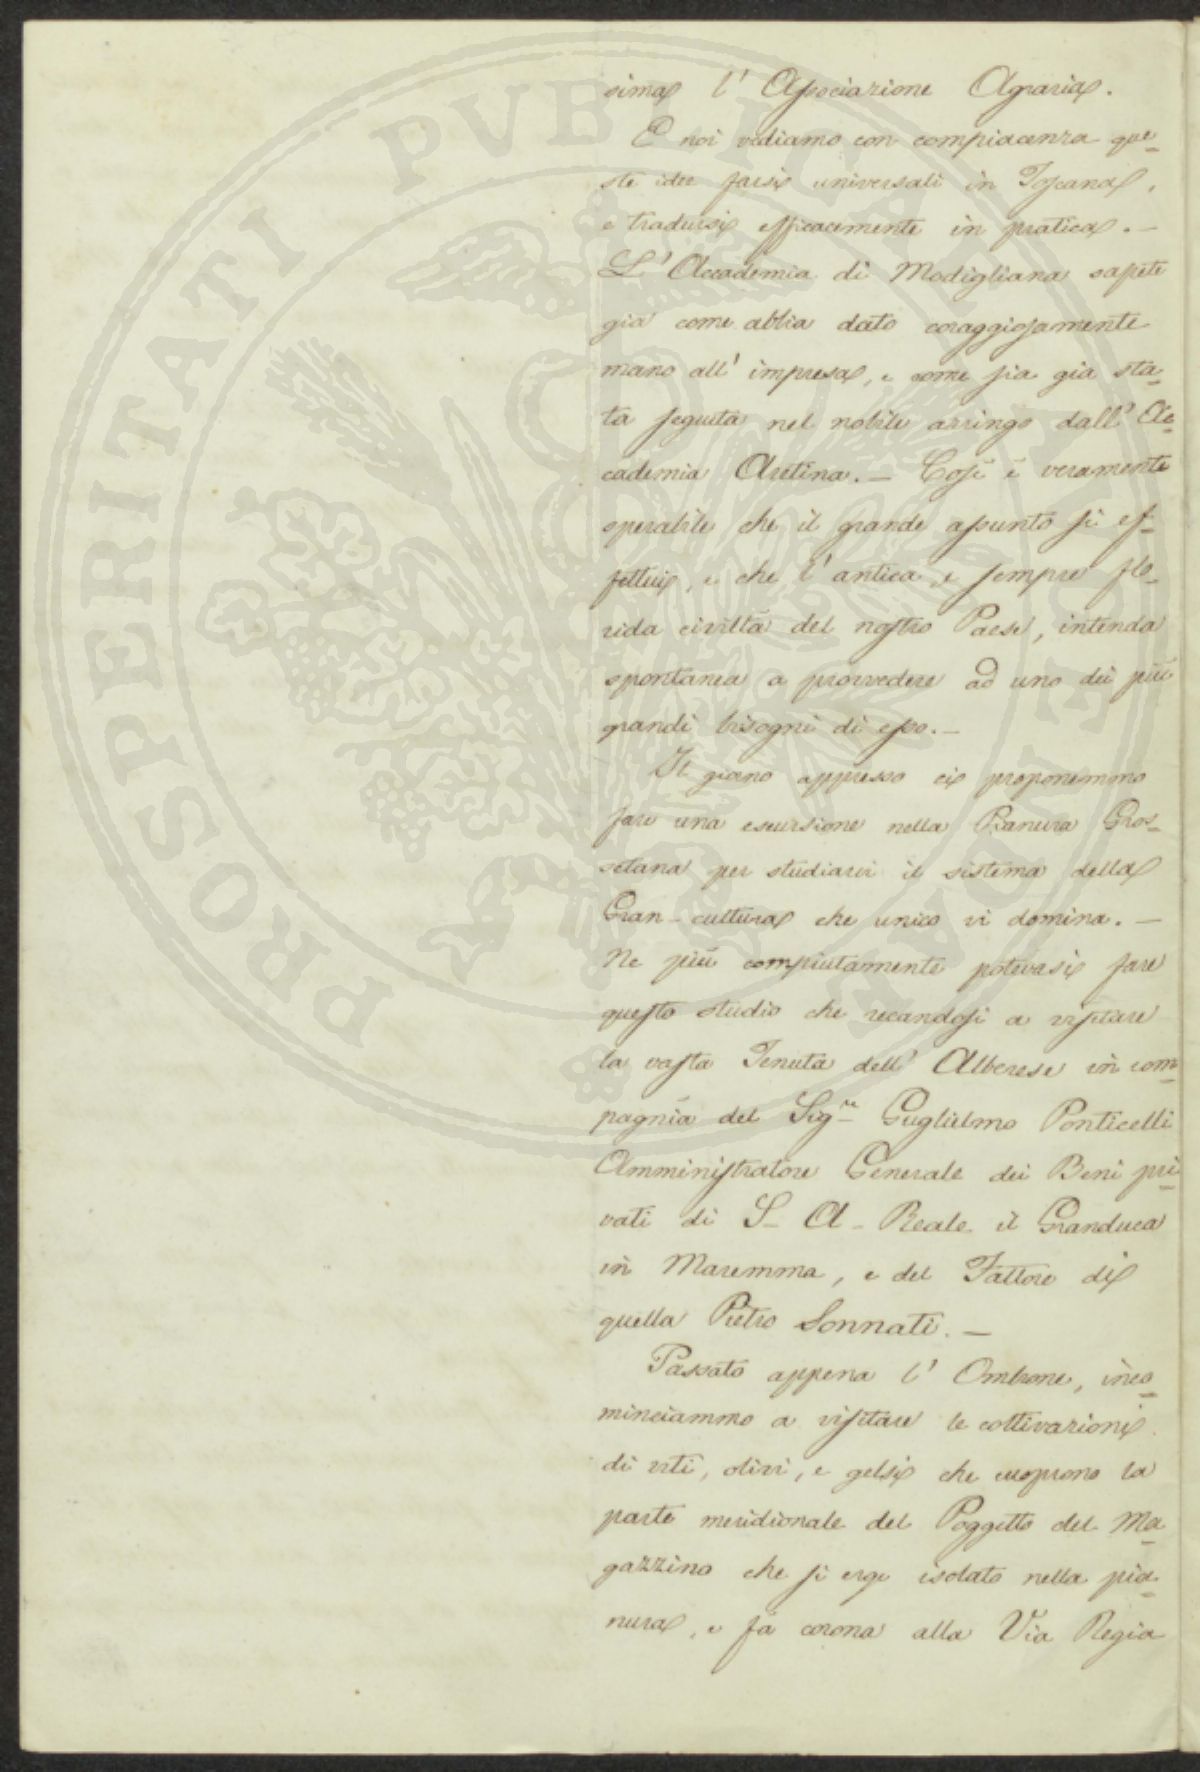 sima l'Associazione Agraria.
E noi vediamo con compiacenza que-
ste idee farsi universali in Toscana,
e tradursi efficacemente in pratica. —
L'Accademia di Modigliana sapete
già come abbia dato coraggiosamente
mano all'impresa, e come sia già sta-
ta seguita nel nobile arringo dall'Ac-
cademia Aretina. — Così è veramente
sperabile che il grande assunto si ef-
fettui, e che l'antica, e sempre flo-
rida civiltà del nostro Paese, intenda
spontanea a provvedere ad uno dei più
grandi bisogni di esso. —
Il giorno appresso ci proponemmo
fare una escursione nella Pianura Gros-
setana per studiarvi il sistema della
Gran-cultura che unico vi domina. —
Ne più compiutamente potevasi fare
questo studio che recandosi a visitare
la vasta Tenuta dell'Alberese in com
pagnia del Sig.re Guglielmo Ponticelli
Amministratore Generale dei Beni pri-
vati di S. A. Reale il Granduca
in Maremma, e del Fattore di
quella Pietro Sonnati. —
Passato appena l'Ombrone, inco-
minciammo a visitare le coltivazioni
di viti, olivi, e gelsi che cuoprono la
parte meridionale del Poggetto del Ma-
gazzino che si erge isolato nella pia-
nura, e fà corona alla Via Regia
PROSPERITATI PUBLICAE